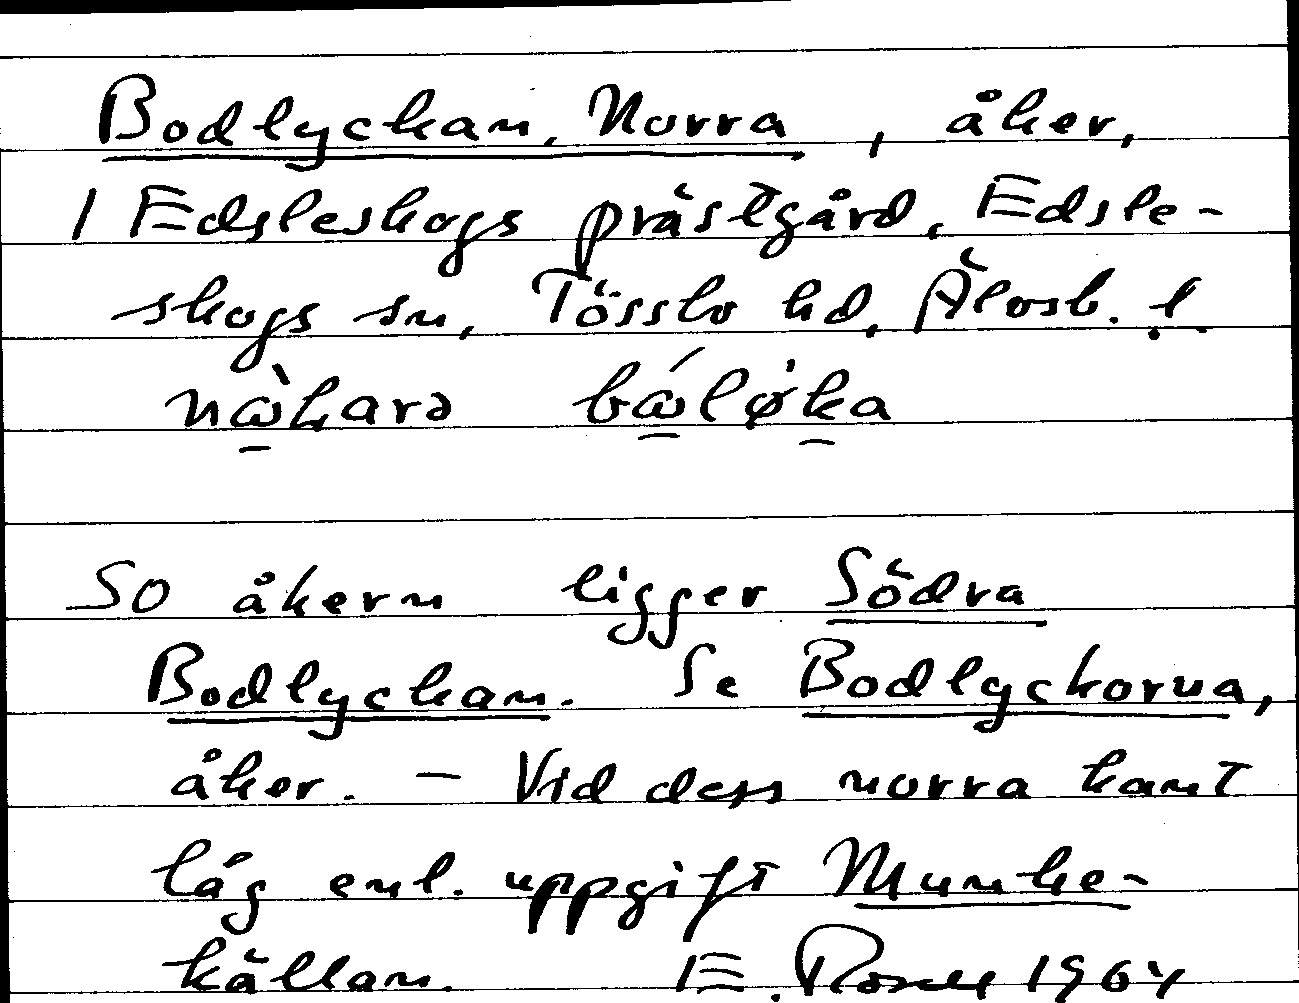 Bodlyckan, Norra, åker,
i Edsleskogs prästgård, Edsle-
skogs sn, Tössbo hd, Älvsb. l.
bǿka
SO åkern ligger Södra
Bodlyckan. Se Bodlyckorna,
åker. — Vid dess norra kant
låg enl. uppgift Munke-
källan. E. Rosell 1964